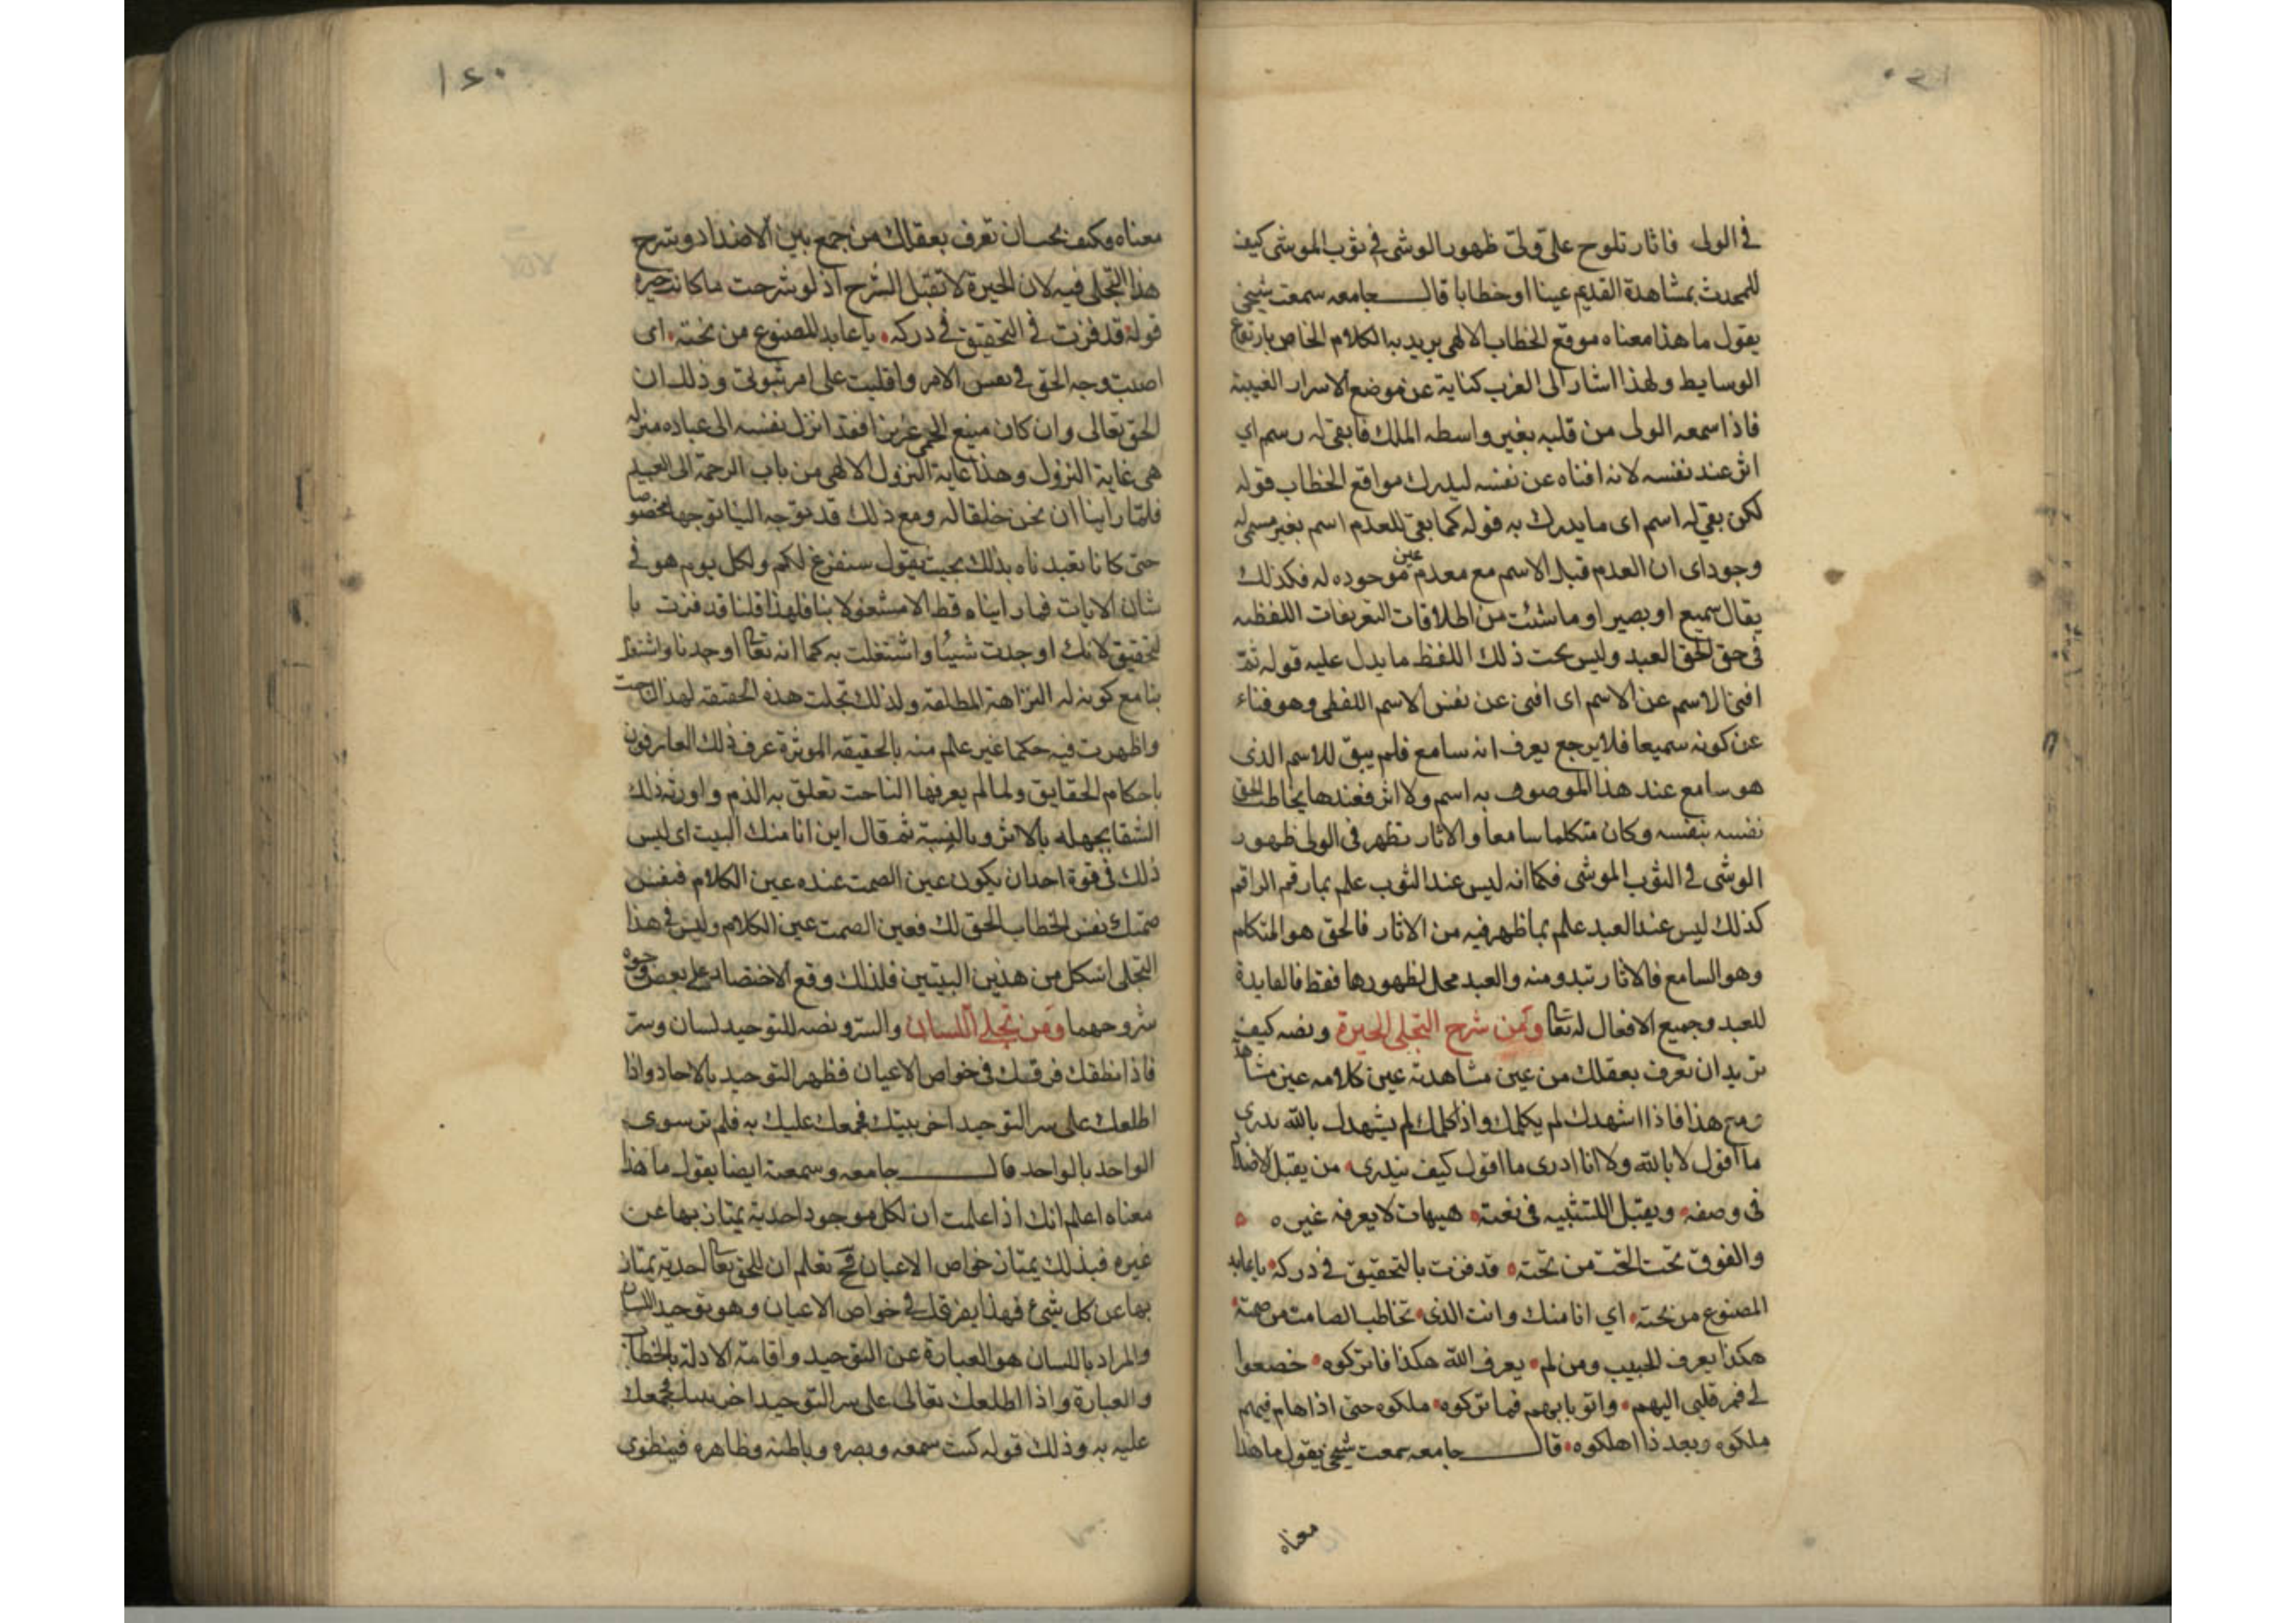 في الولى فاثار تلوح على ولىّ ظهور الوشى في ثوب الموشى كيف
للمحدث بمشاهدة القديم عينا او خطابا قال جامعه سمعت شيخي
يقول ما هذا معناه موقع الخطاب الالهى يريد به الكلام الخاص بارتفاع
الوسايط ولهذا اشار الى الغرب كناية عن موضع الاسرار الغيبية
فاذا سمعه الولى من قلبه بغير واسطه الملك فابقى له رسم اي
اثر عند نفسه لانه افناه عن نفسه ليدرك مواقع الخطاب قوله
لكن بقى له اسم اى ما يدرك به قوله كما بقى للعدم اسم بغير مسمى له
وجود اى ان العدم قبل الاسم مع معدم عين موجوده له فكذلك
يقال سميع او بصير او ما شئت من اطلاقات التعريفات اللفظيه
في حق الحق العبد وليس تحت ذلك اللفظ ما يدل عليه قوله ثم
افنى الاسم عن الاسم اى افنى عن نفس الاسم اللفظى وهو فناء
عن كونه سميعا فلا يرجع يعرف انه سامع فلم يبق للاسم الذى
هو سامع عند هذا الموصوف به اسم ولا اثر فعندها يخاطب الحق
نفسه بنفسه وكان متكلما سامعا والاثار تظهر فى الولى ظهور
الوشى فى الثوب الموشى فكما انه ليس عند الثوب علم بما رقم الراقم
كذلك ليس عند العبد علم بما ظهر فيه من الاثار فالحق هو المتكلم
وهو السامع فالاثار تبدو منه والعبد محل لظهورها فقط فالفايدة
للعبد وجميع الافعال له تعا ومن شرح التجلى الحيرة ونصه كيف
تريد ان تعرف بعقلك من عين مشاهدته عين كلامه عين مشاهدته
ومع هذا فاذا اشهدك لم يكلمك واذا كلمك لم يشهدك بالله تدرى
ما اقول لا بالله ولا انا ادرى ما اقول كيف يدرى من يقبل الاضداد
فى وصفه ويقبل التشبيه فى نعته هيهات لا يعرفه غيره
والفوق تحت التحت من تحته قد فزت بالتحقيق في دركه يا عابد
المصنوع من نحته اي انا منك وانت الذى تخاطب الصامت من صمته
هكذا يعرف الحبيب ومن لم يعرف الله هكذا فاتركوه خضعوا
لى فمر قلبى اليهم واتو بابهم فما تركوه ملكوه حتى اذا هام فيهم
ملكوه وبعد ذا اهلكوه قال جامعه سمعت شيخي يقول ما هذا
معناه
١٤٠
معناه وكيف بحسان تعرف بعقلك من جمع بين الاضداد وشرح
هذا التجلى فيه لان الحيرة لا تقبل الشرح اذ لو شرحت ما كانت حيرة
قوله قد فزت في التحقيق في دركه يا عابد المصنوع من نحته اى
اصبت وجه الحق في نفس الامر واقليت على امر ثبوتى وذلك ان
الحق تعالى وان كان منيع الحمى عزيزا فقد انزل نفسه الى عباده منزلة
هى غاية النزول وهذا غاية النزول الالهى من باب الرحمة الى العبيد
فلما راينا ان نحن خلقا له ومع ذلك قد توجه الينا توجها مخصوصا
حتى كانا تعبدناه بذلك بحيث يقول سنفرغ لكم ولكل يوم هو فى
شان الايات فما رايناه قط الا مشغولا بنا فلهذا قلنا قد فزت با
لتحقيق لانك اوجدت شيئا واشتغلت به كما انه تعا اوجدنا واشتغل
بنا مع كونه له النزاهة المطلقة ولذلك تجلت هذه الحقيقه لهذا الناحت
واظهرت فيه حكما غير علم منه بالحقيقه الموثرة عرف ذلك العارفون
باحكام الحقايق ولما لم يعرفها الناحت تعلق به الذم واورثه ذلك
الشقا بجهله بالاثر وبالنسبة ثم قال اين انا منك البيت اى ليس
ذلك فى قوة احد ان يكون عين الصمت عنده عين الكلام فنفس
صمتك نفس الخطاب الحق لك فعين الصمت عين الكلام وليس فى هذا
التجلى اشكل من هذين البيتين فلذلك وقع الاختصار على بعض وجوه
شروحهما ومن تجلى اللسان والسر ونصه للتوحيد لسان وسر
فاذا انطقك فرقك فى خواص الاعيان فظهر التوحيد بالاحاد واذا
اطلعك على سر التوحيد اخر ببيتك فجمعك عليك به فلم تر سوى
الواحد بالواحد قال جامعه وسمعته ايضا يقول ما هذا
معناه اعلم انك اذا علمت ان لكل موجود احدية يمتاز بها عن
غيره فبذلك يمتاز خواص الاعيان فح تعلم ان للحق تعا احدية يمتاز
بها عن كل شيء فهذا يفرقك في خواص الاعيان وهو توحيد اللسان
والمراد باللسان هو العبارة عن التوحيد واقامة الادلة بالخطاب
والعبارة واذا اطلعك تعالى على سر التوحيد فجمعك
عليه به وذلك قوله كنت سمعه وبصره وباطنه وظاهره فينطوى